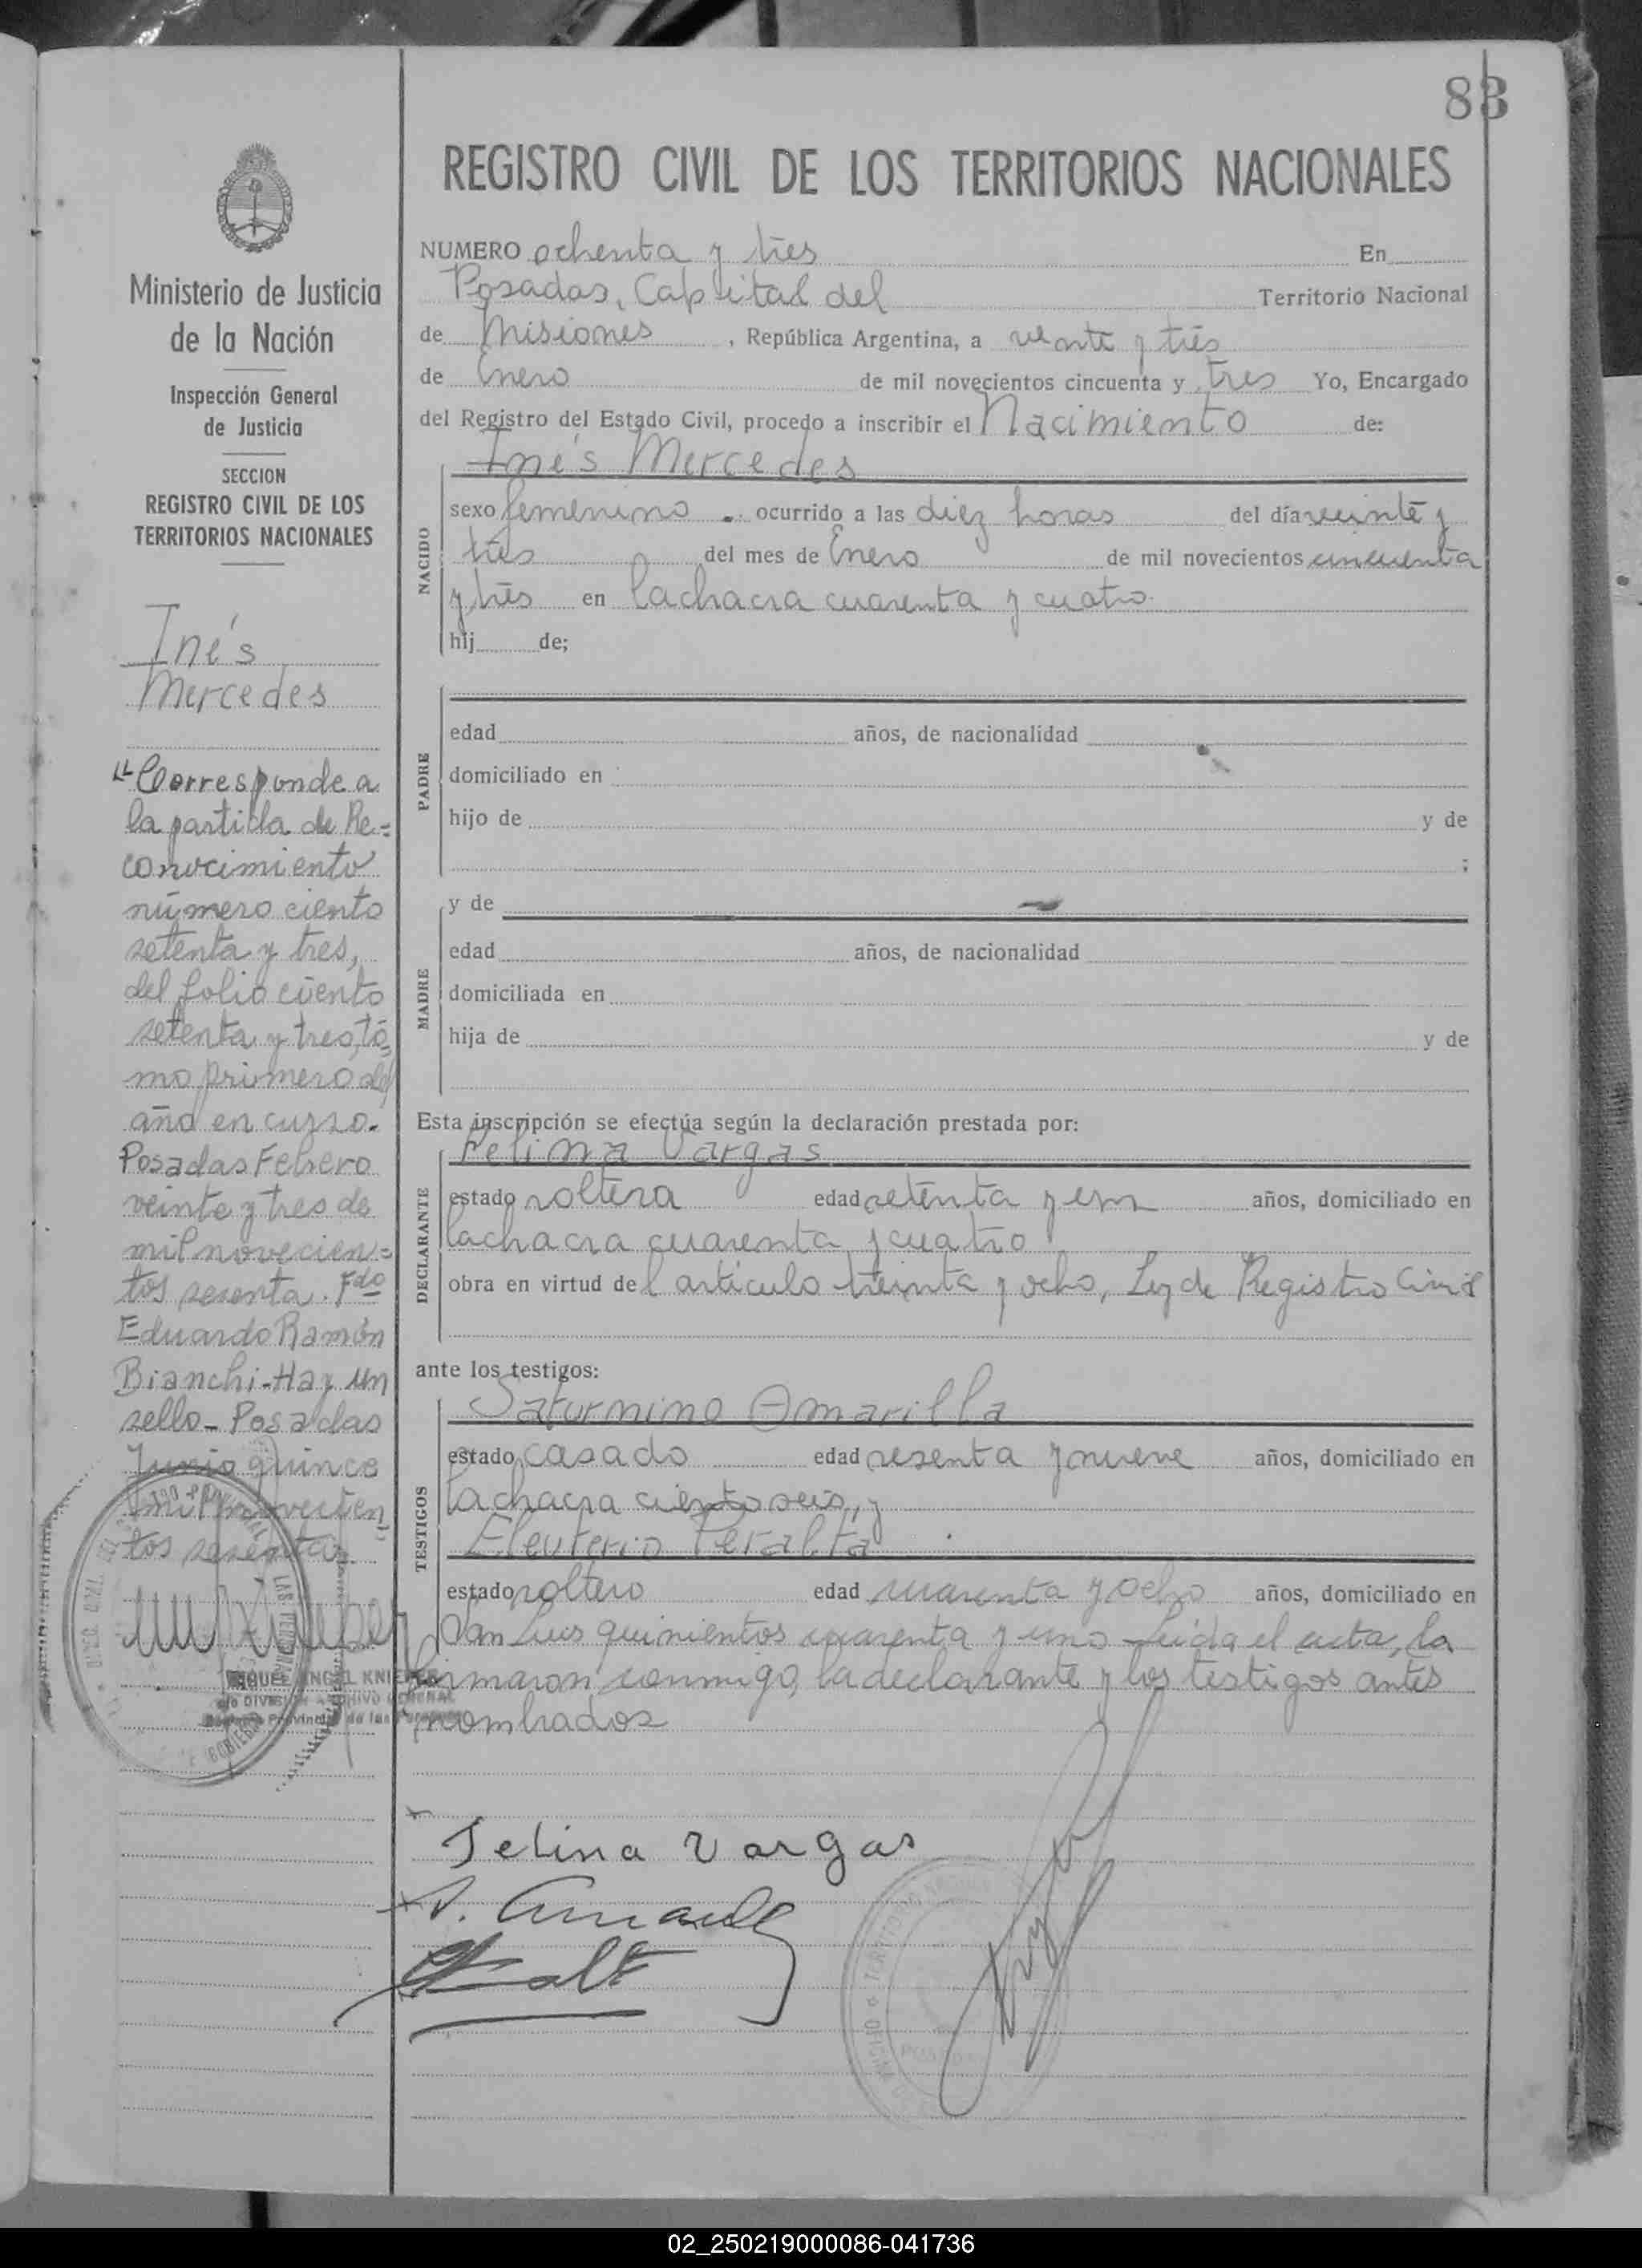 83
REGISTRO CIVIL DE LOS TERRITORIOS NACIONALES
NUMERO ochenta y tres En
Posadas, Capital del Territorio Nacional
de Misiones, República Argentina, a veinte y tres
de Enero de mil novecientos cincuenta y tres Yo, Encargado
del Registro del Estado Civil, procedo a inscribir el Nacimiento de:
Inés Mercedes
NACIDO
sexo femenino. ocurrido a las diez horas del día veinte y
tres del mes de Enero de mil novecientos cincuenta
y tres en la chacra cuarenta y cuatro.
hij de;
PADRE
edad años, de nacionalidad
domiciliado en
hijo de y de
;
MADRE
y de
edad años, de nacionalidad
domiciliada en
hija de y de
Esta inscripción se efectúa según la declaración prestada por:
Felina Vargas
DECLARANTE
estado soltera edad setenta y un años, domiciliado en
la chacra cuarenta y cuatro
obra en virtud del artículo treinta y ocho, Ley de Registro Civil
ante los testigos:
Saturnino Amarilla
TESTIGOS
estado casado edad sesenta y nueve años, domiciliado en
la chacra ciento seis, y
Eleuterio Peralta
estado soltero edad cuarenta y ocho años, domiciliado en
San Luis quinientos cuarenta y uno Leida el acta, la
firmaron conmigo, la declarante y los testigos antes
nombrados
Felina Vargas
Ministerio de Justicia
de la Nación
Inspección General
de Justicia
SECCION
REGISTRO CIVIL DE LOS
TERRITORIOS NACIONALES
Inés
Mercedes
"Corresponde a
la partida de Re=
conocimiento
número ciento
setenta y tres,
del folio ciento
setenta y tres, tó=
mo primero del
año en curso.
Posadas Febrero
veinte y tres de
mil novecien=
tos sesenta. Fdo
Eduardo Ramón
Bianchi-Hay un
sello-Posadas
Junio quince
mil novecien
tos sesenta
02_250219000086-041736